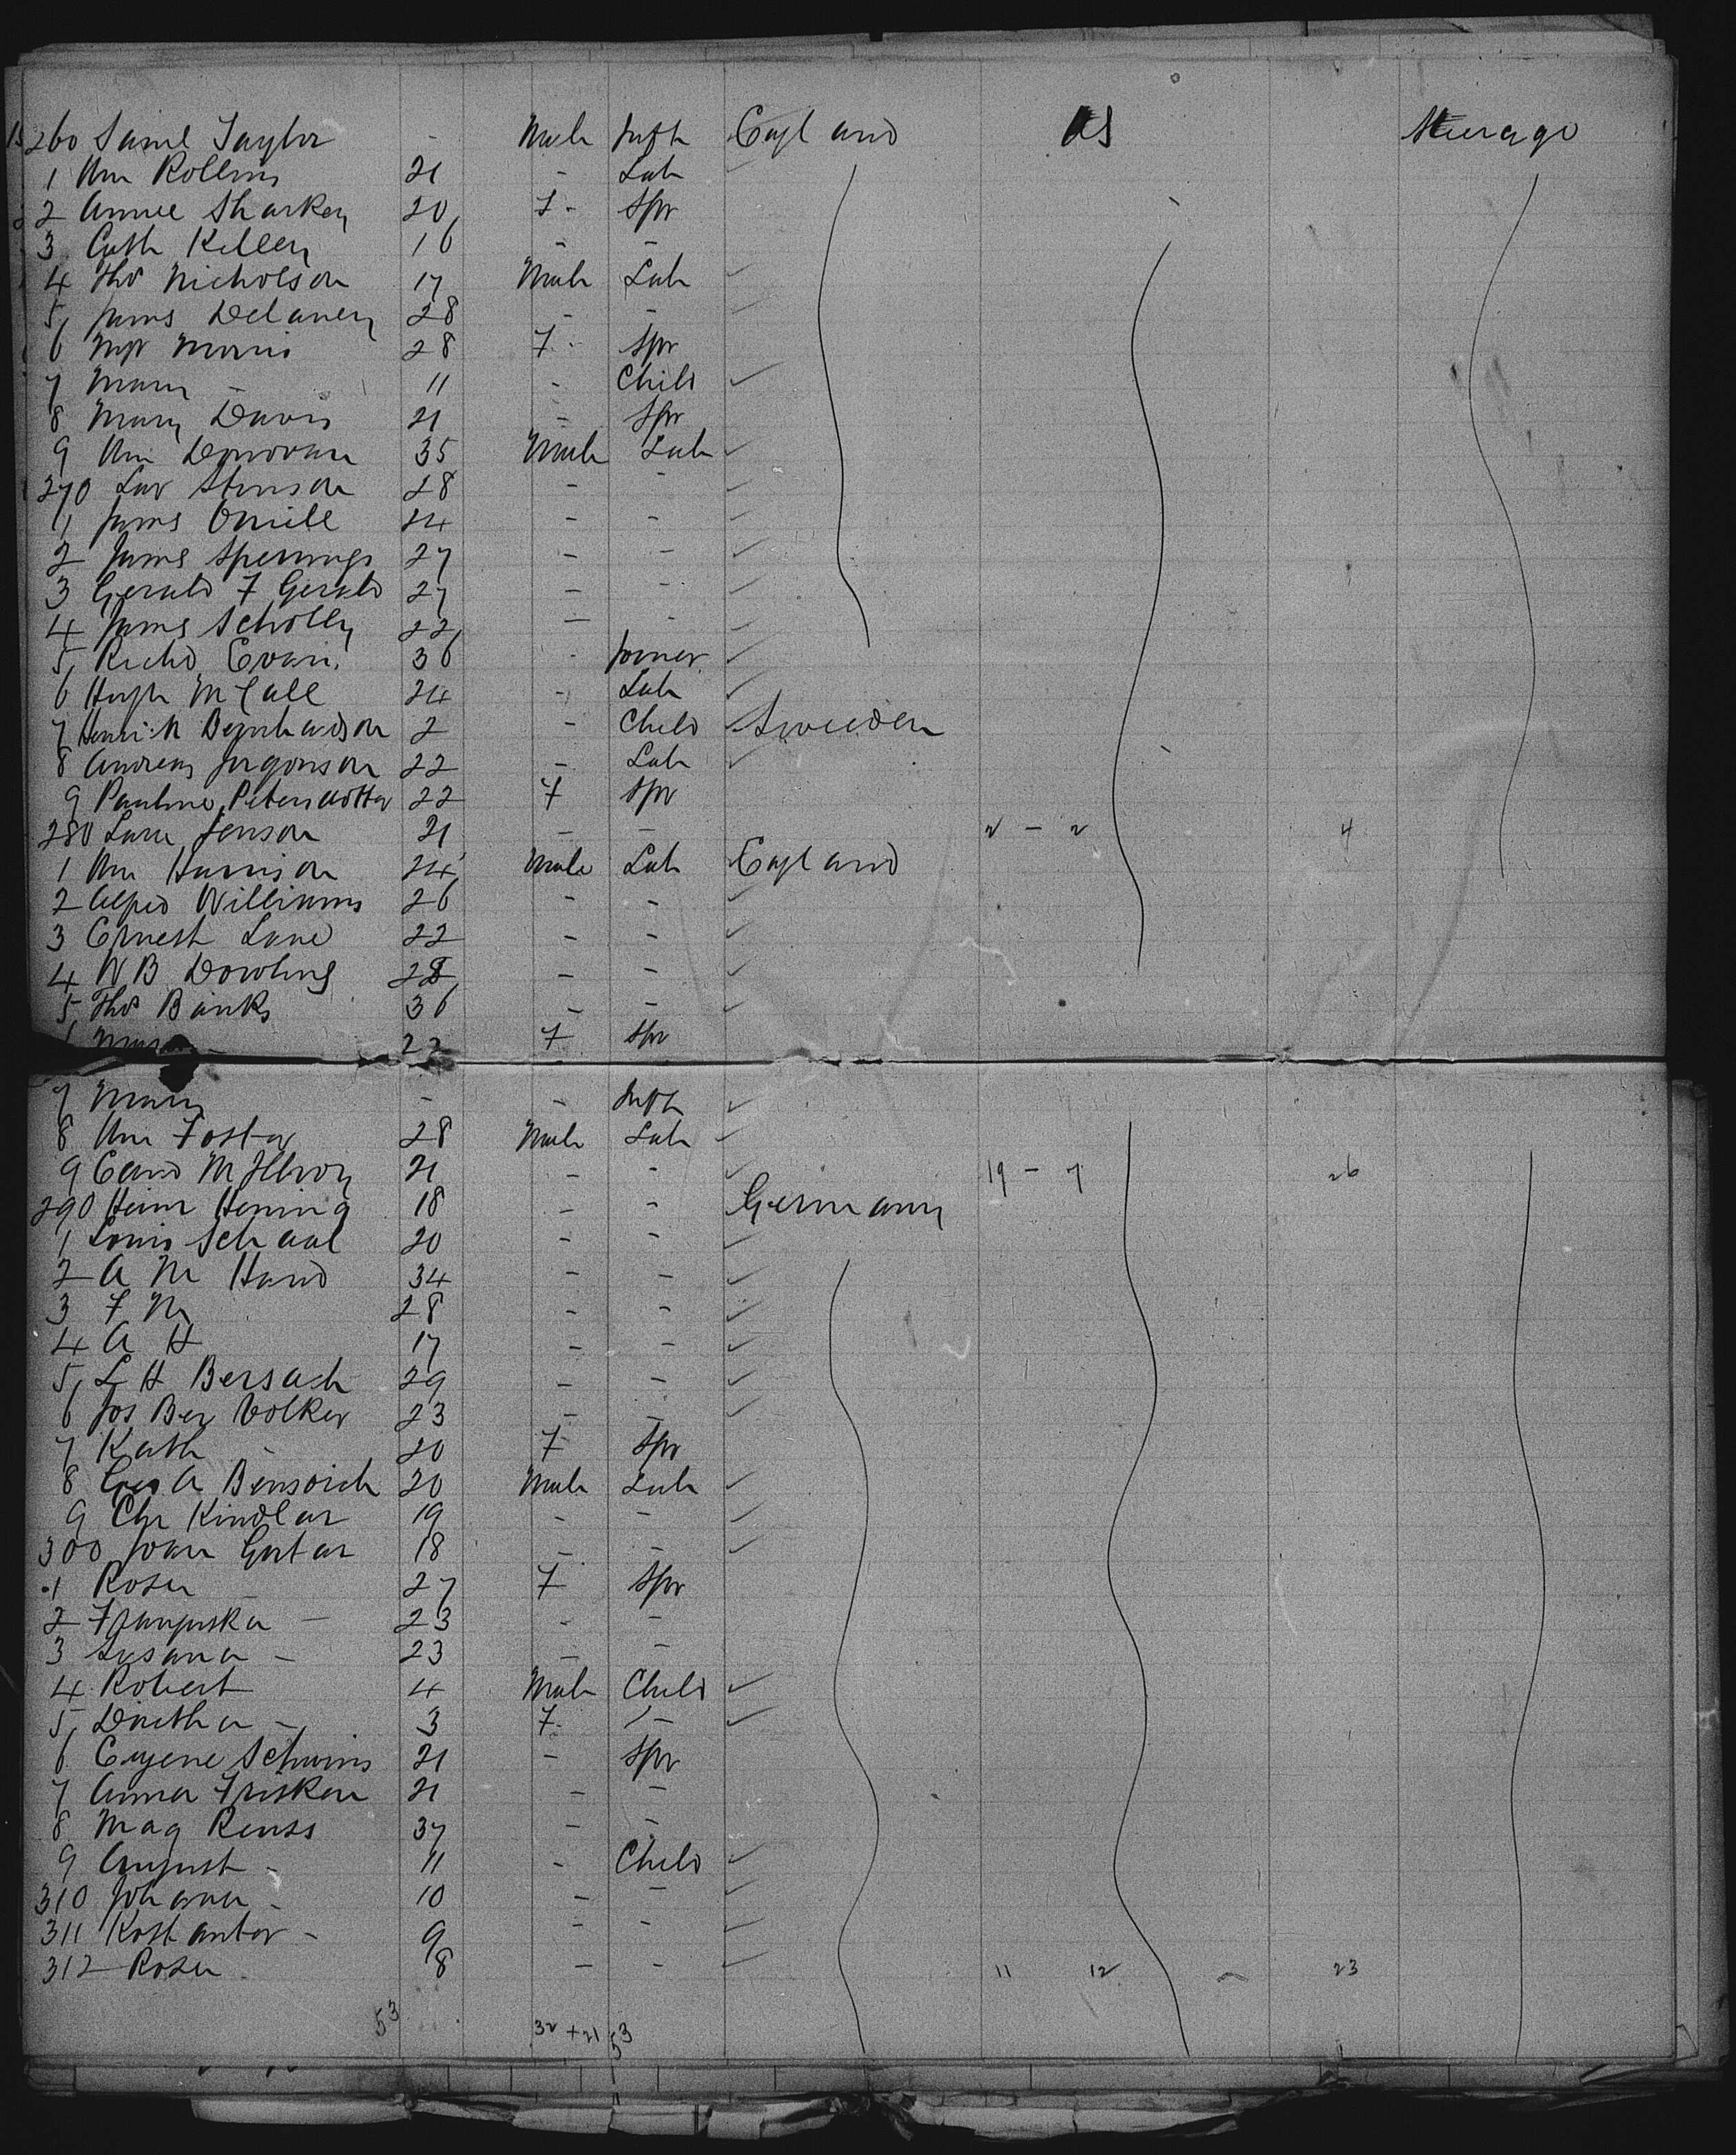 260 Saml Taylor - Male Inft England US Steerage
1 Wm Rollins 21 - Lab
2 Annie Sharkey 20 F - Spr
3 Cath Killey 16 - -
4 Thos Nicholson 17 Male Lab
5 James Delaney 28 - -
6 Mgt Morris 28 F - Spr
7 Mary - 11 - Child
8 Mary Davis 21 - Spr
9 Wm Donovan 35 Male Lab
270 Stinson 28 -
11 James Oneill 24 - -
2 James 27 - -
3 Gerald F Gerald 27 - -
4 James Scholly 22 - -
5 Richd Evans 36 - Joiner
6 Hugh McCall 24 - Lab
7 Henrik 2 - Child Sweeden
8 Andreas 22 - Lab
9 Pauline Petersdotter 22 F Spr
280 Jenson 21 - - 2 - 2 4
1 Wm Harrison 24 Male Lab England
2 Alfred Williams 26 - -
3 Ernest Lane 22 - -
4 W B Dowling 28 - -
5 Thos Banks 36 - -
22 F Spr
7 Mary - - Inft
8 Wm Foster 28 Male Lab
9 21 - - 19 - 7 26
290 Heinr Hening 18 - - Germany
1 Louis Schaal 20 - -
2 A M Hand 34 - -
3 F M 28 - -
4 A H 17 - -
5 L H Bersach 29 - -
6 Jos Ber Volker 23 - -
7 Kath - 20 F Spr
8 Geo A 20 Male Lab
9 Chr Kindlar 19 - -
300 18 - -
1 Rosa - 27 F Spr
2 - 23 - -
3 Susana - 23 - -
4 Robert 4 Male Child
5 - 3 F - -
6 Eugene 21 - Spr
7 Anna 21 - -
8 Mag Reuss 37 - -
9 August - 11 - Child
310 Johanna - 10 - -
311 - 9 - -
312 Rosa 8 - - 11 12 23
53 32 + 21 53